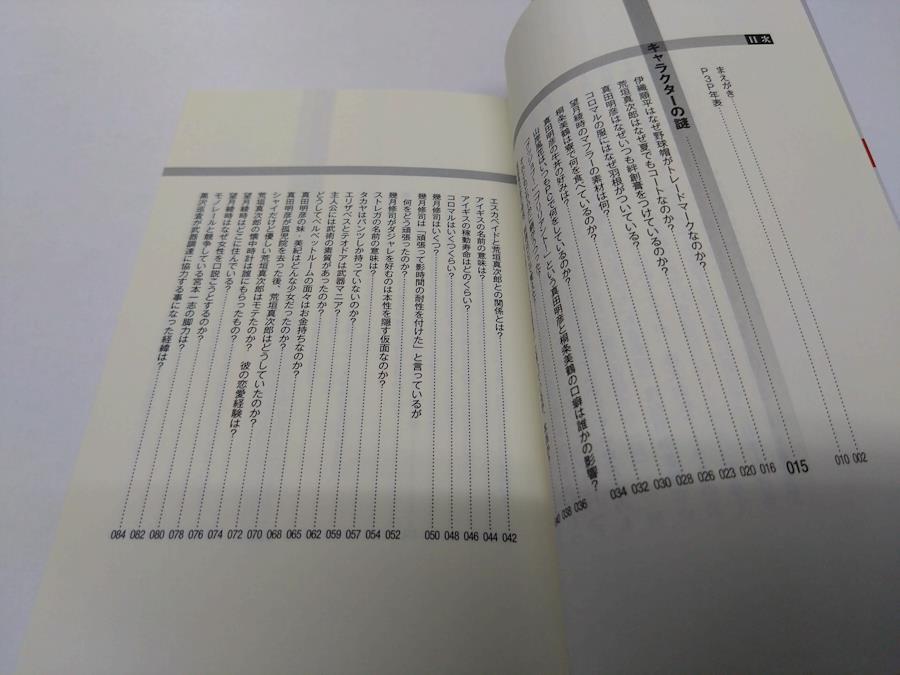 目次
まえがき 002
P3P年表 010
キャラクターの謎 015
伊織順平はなぜ野球帽がトレードマークなのか? 016
荒垣真次郎はなぜ夏でもコートなのか? 020
真田明彦はなぜいつも絆創膏をつけているのか? 023
コロマルの服にはなぜ羽根がついている? 026
望月綾時のマフラーの素材は何? 028
桐条美鶴は寮で何を食べているのか? 030
真田明彦の牛丼の好みは? 032
山岸風花はいつもPCで何をしているのか? 034
という真田明彦と桐条美鶴の口癖は誰かの影響? 036
038
エスカペイドと荒垣真次郎との関係とは? 042
アイギスの名前の意味は? 044
アイギスの稼動寿命はどのくらい? 046
コロマルはいくつくらい? 048
幾月修司はいくつ? 050
幾月修司は「頑張って影時間の耐性を付けた」と言っているが
何をどう頑張ったのか? 052
幾月修司がダジャレを好むのは本性を隠す仮面なのか? 054
ストレガの名前の意味は? 057
タカヤはパンツしか持っていないのか? 059
エリザベスとテオドアは武器マニア? 062
主人公には武術の素質があったのか? 065
どうしてベルベットルームの面々はお金持ちなのか? 068
真田明彦の妹・美紀はどんな少女だったのか? 070
真田明彦が孤児院を去った後、荒垣真次郎はどうしていたのか? 072
シャイだけど優しい荒垣真次郎はモテたのか? 彼の恋愛経験は? 074
荒垣真次郎の懐中時計は誰にもらったもの? 076
望月綾時はどこに住んでいる? 078
望月綾時はなぜ女性を口説こうとするのか? 080
モノレールと競争している宮本一志の脚力は? 082
黒沢巡査が武器調達に協力する事になった経緯は? 084